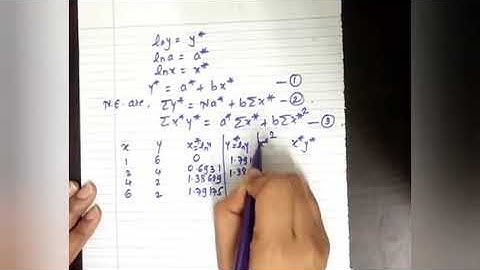 lny = y*
lna = a*
lnx = x*
y* = a* + bx* —①
N.E. are, Σy* = Na* + bΣx* —②
Σx*y* = a*Σx* + bΣx*² —③
x y x*=lny y*=lny x*² x*y*
1 6 0 1.79
2 4 0.6931 1.38
4 2 1.38629
6 2 1.79175